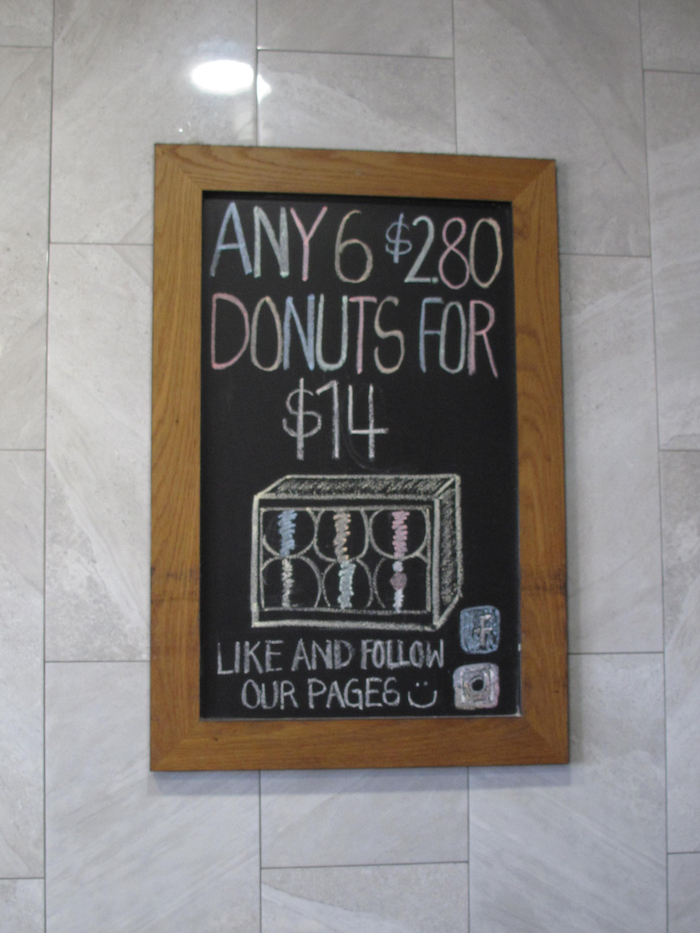 ANY 6 $2.80
DONUTS FOR
$14
LIKE AND FOLLOW
OUR PAGES